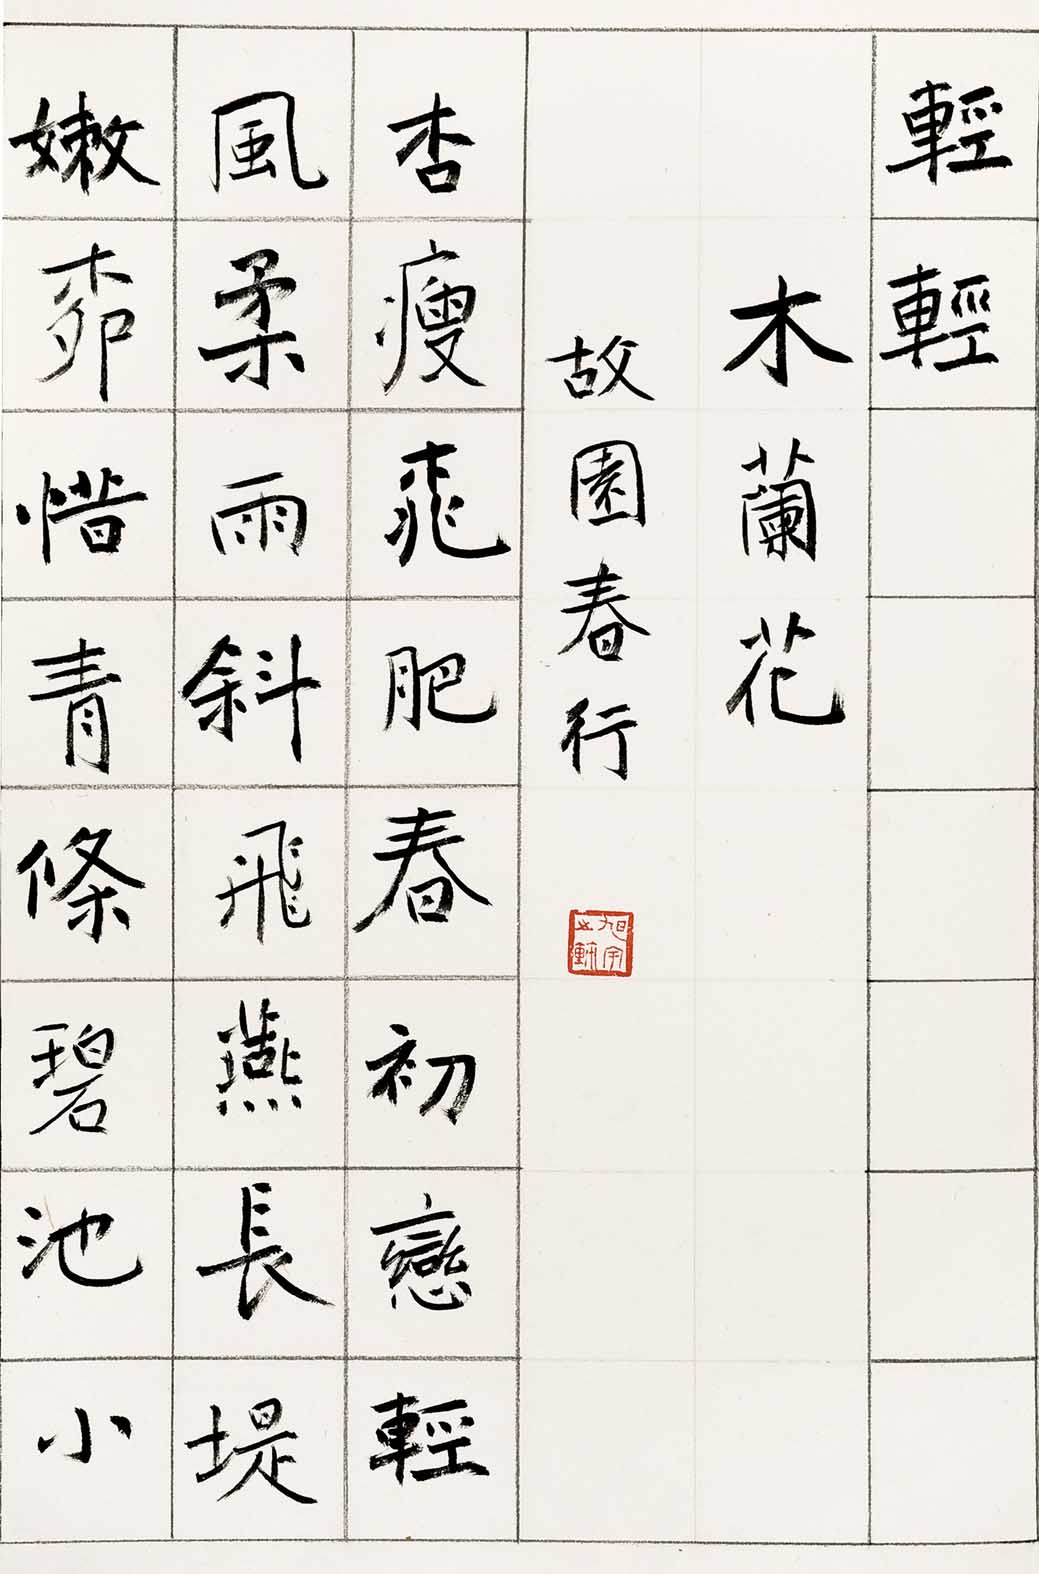 輕輕
木蘭花
故園春行
旭宇
杏瘦桃肥春初戀輕
風柔雨斜飛燕長堤
嫩柳惜青條碧池小